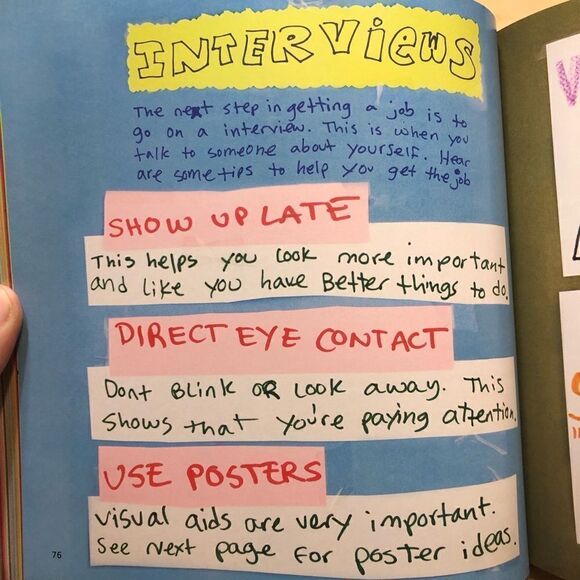 INTERViEWS
The next step in getting a job is to
go on a interview. This is when you
talk to someone about yourself. Hear
are some tips to help you get the job
SHOW UP LATE
This helps you look more important
and like you have Better things to do.
DIRECT EYE CONTACT
Dont BLink OR Look away. This
shows that you're paying attention.
USE POSTERS
visual aids are very important.
See Next page for poster ideas.
76